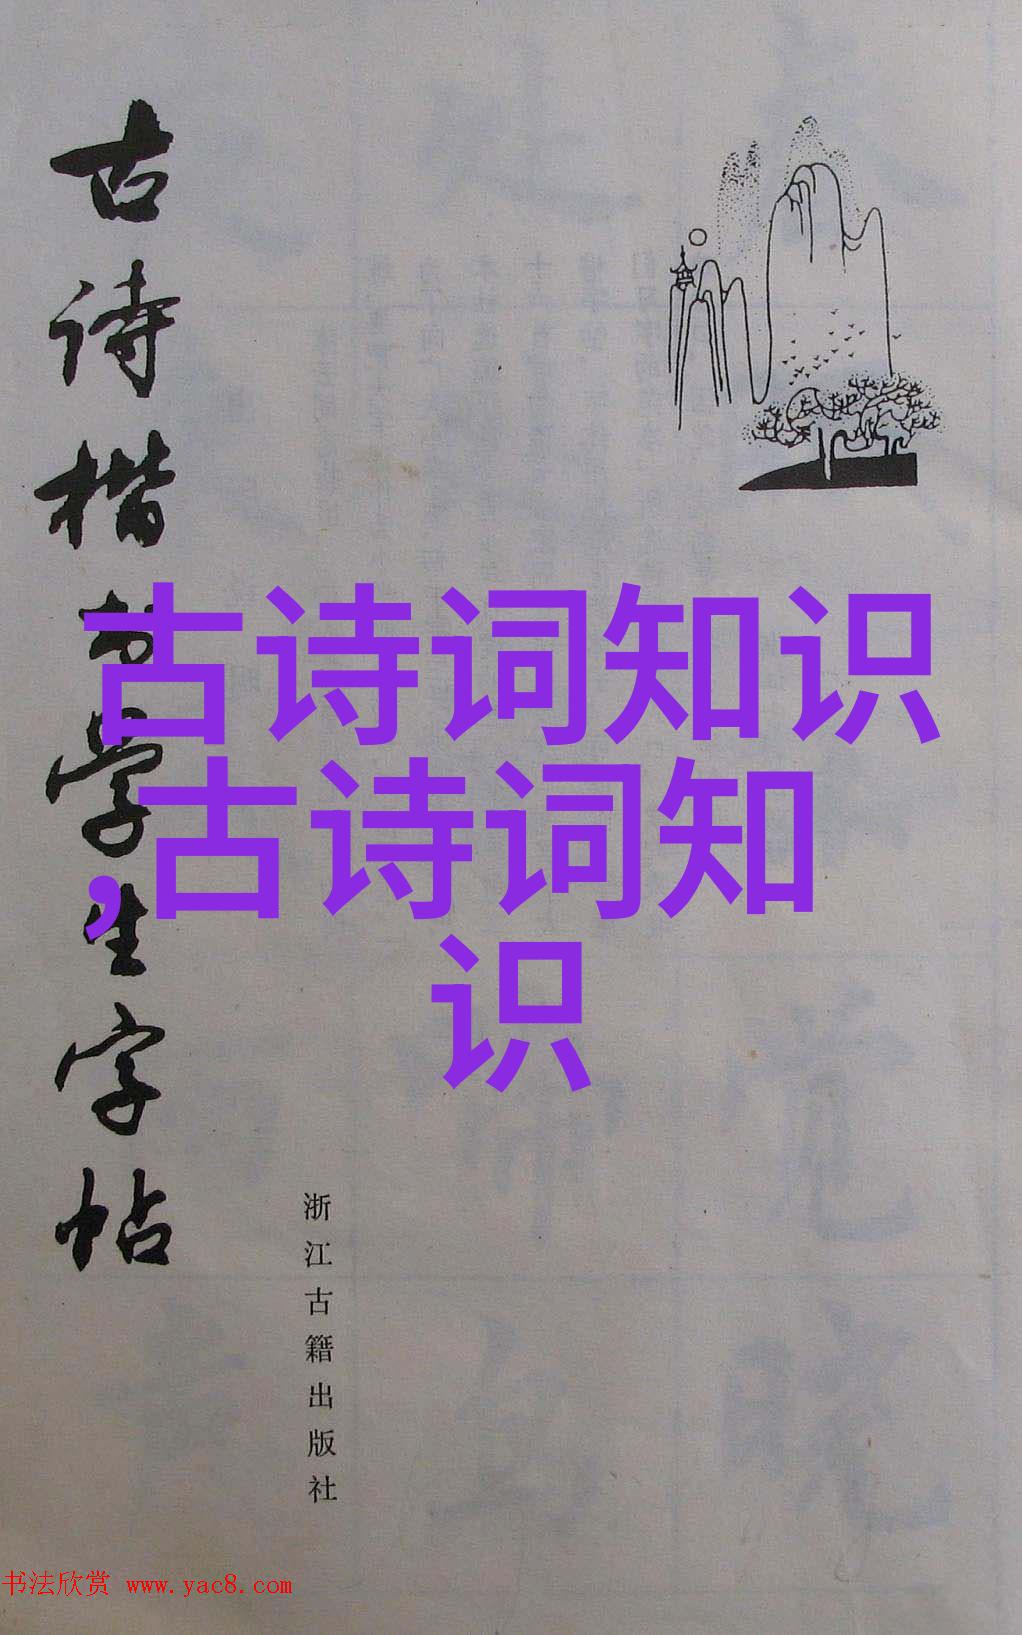 古诗楷书学生字帖
古诗词知识
,古诗词知
识
浙江古籍出版社
书法欣赏 www.yac8.com